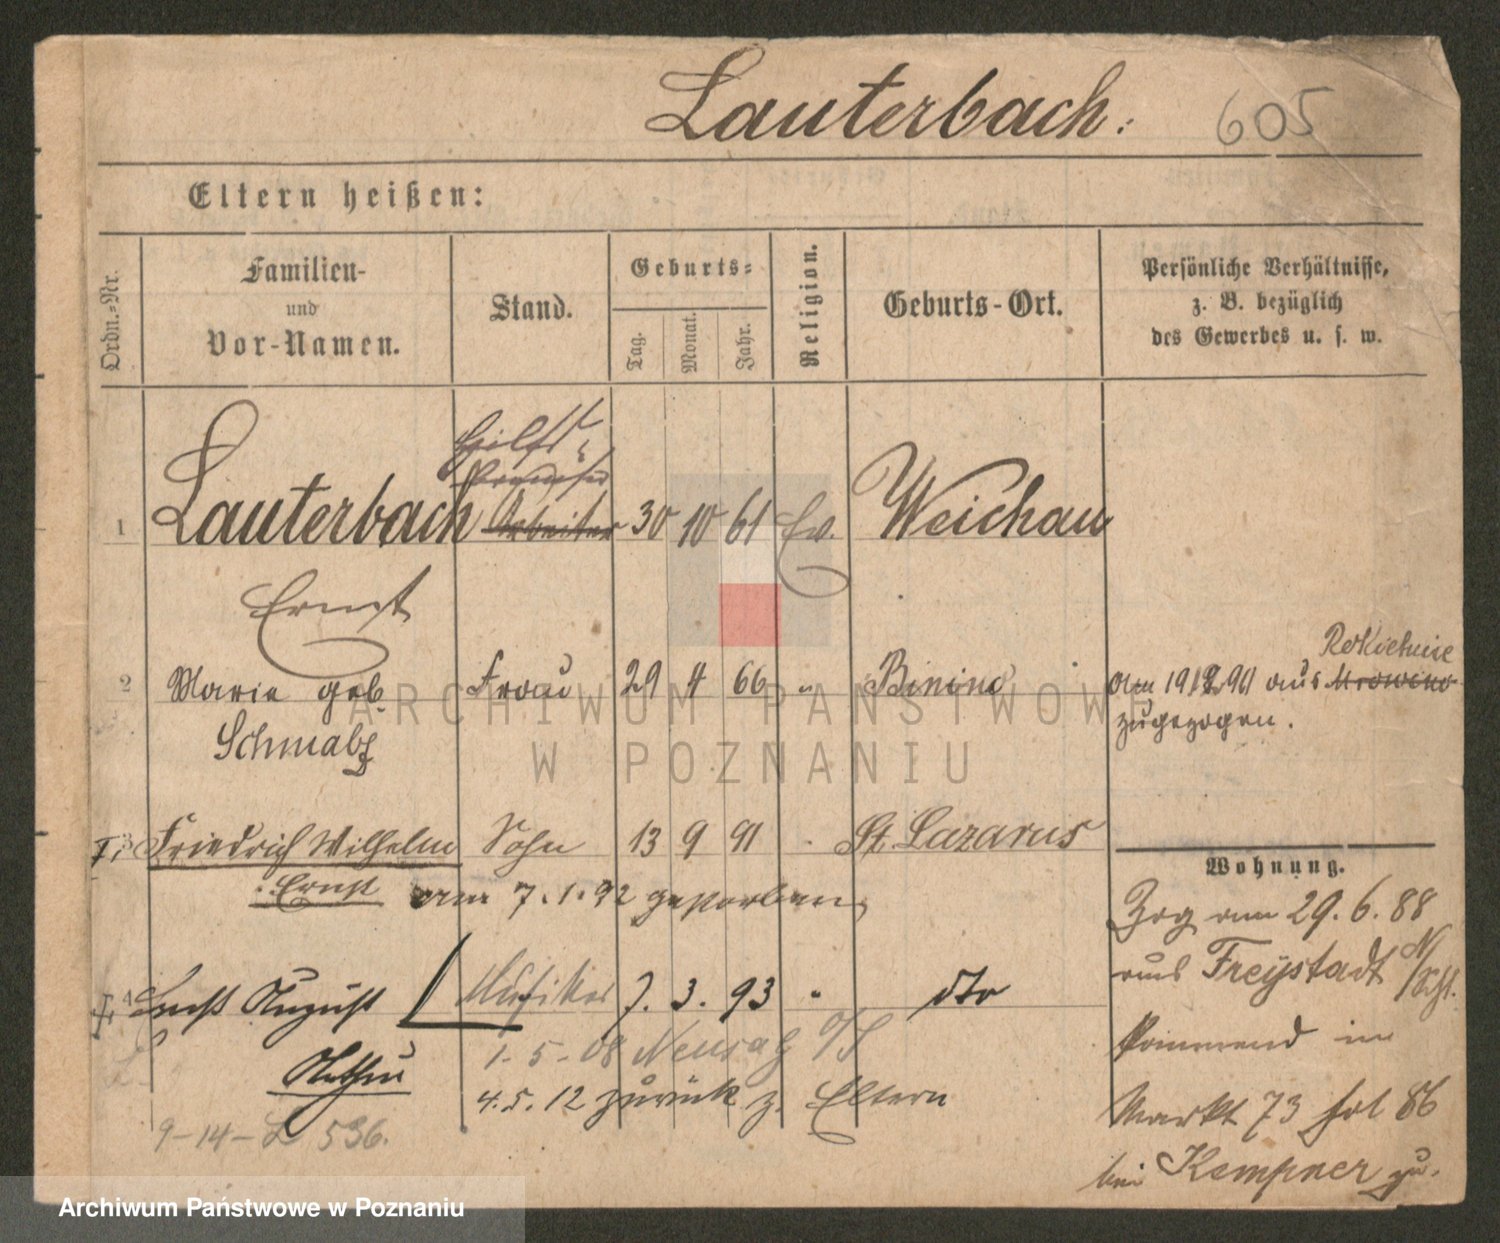 Lauterbach. 605
Eltern heißen:
Ordn.-Nr.
Familien-
und
Vor-Namen.
Stand.
Geburts-
Tag.
Monat.
Jahr.
Religion.
Geburts-Ort.
Persönliche Verhältnisse,
z. B. bezüglich
des Gewerbes u. s. w.
Hilfs-
1 Lauterbach Arbeiter 30 10 61 Ev. Weichau
Ernst
2 Marie geb. Frau 29 4 66 " Binino
Schmalz
Rokietnice
am aus Mrowino
zugezogen.
3 Friedrich Wilhelm Sohn 13 9 91 St. Lazarus
Ernst am 7.1.92 gestorben
4 Ernst August Musiker 7. 3. 93 " dto
1-5-08 Neusalz O/S
4.5.12 zurück z. Eltern
9-14-L 536.
Wohnung.
Zog am 29.6.88
aus Freystadt N/Schl.
kommend in
Markt 73
bei Kempner zu.
ARCHIWUM PAŃSTWOWE
W POZNANIU
Archiwum Państwowe w Poznaniu